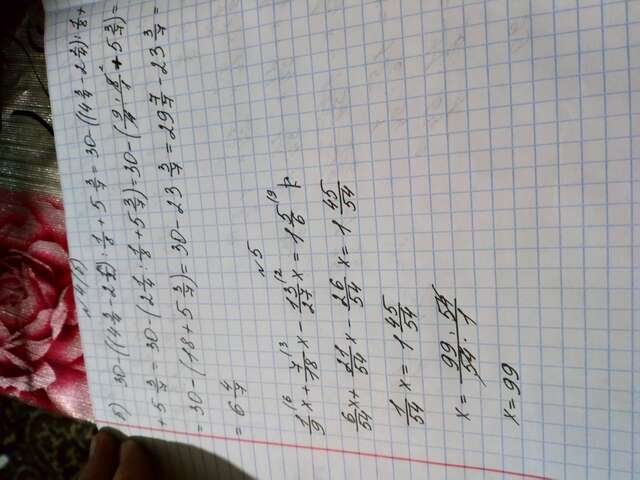 №4(б)
б) 30-((4 3/4-2 1/2):1/8+5 3/7=30-((4 3/4-2 2/4):1/8+
+5 3/7=30-(2 1/4:1/8+5 3/7)=30-(9/4·8/1+5 3/7)=
=30-(18+5 3/7)=30-23 3/7=29 7/7-23 3/7=
=6 4/7
№5
1/9 x+7/18 x-13/27 x=1 5/6
6/54 x+21/54 x-26/54 x=1 45/54
1/54 x=1 45/54
x=99·54/54·1
x=99